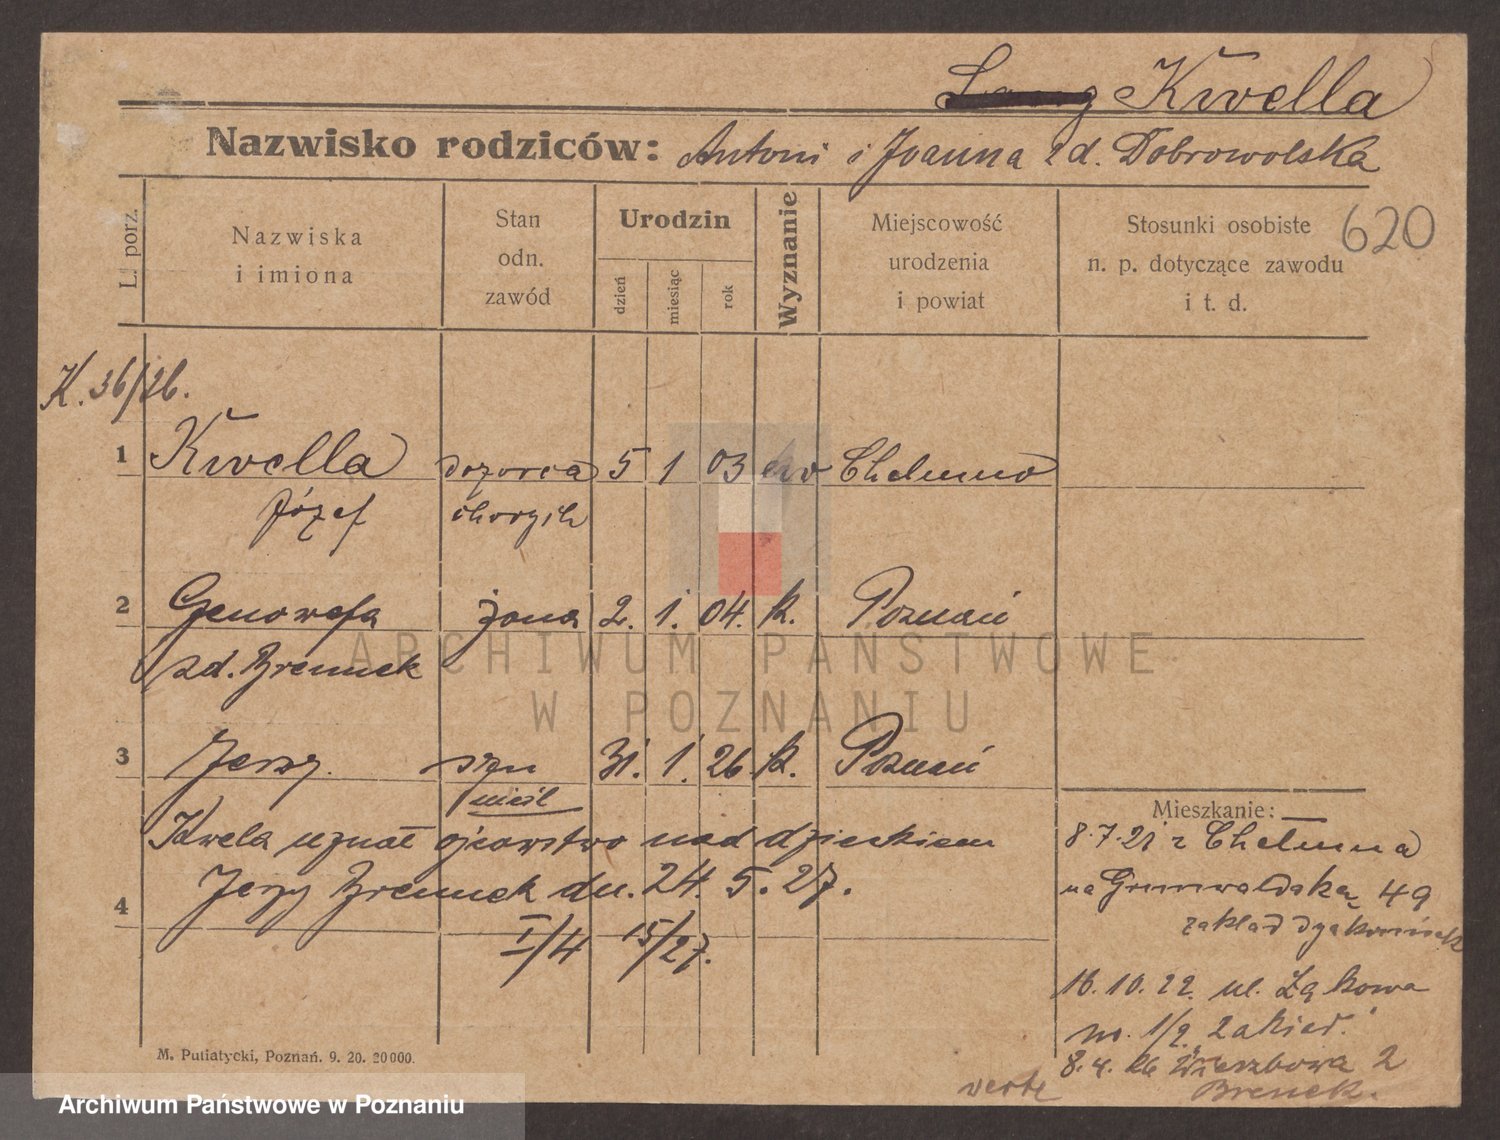 Kwella
Nazwisko rodziców: Antoni i Joanna zd. Dobrowolska
L. porz.
Nazwiska
i imiona
Stan
odn.
zawód
Urodzin
dzień
miesiąc
rok
Wyznanie
Miejscowość
urodzenia
i powiat
Stosunki osobiste
n. p. dotyczące zawodu
i t. d.
620
K. 36/26.
1 Kwella dozorca 5 1 03 ew Chełmno
Józef chorych
2 Genowefa żona 2. 1. 04. k. Poznań
zd. Brennek
3 Jerzy syn 31. 1. 26 k. Poznań
nieśl
Kwela uznał ojcowstwo nad dzieckiem
Jerzy Brennek dn. 24. 5. 27.
4
I/4 15/27.
Mieszkanie:
8.7.21 z Chełmna
na Grunwaldską 49
zakład dyakonisek
16.10.22. ul. Łąkowa
nr. 1/2
8.4.26 Wierzbowa 2
Brenek.
verte
M. Putiatycki, Poznań. 9. 20. 20000.
ARCHIWUM PAŃSTWOWE
W POZNANIU
Archiwum Państwowe w Poznaniu